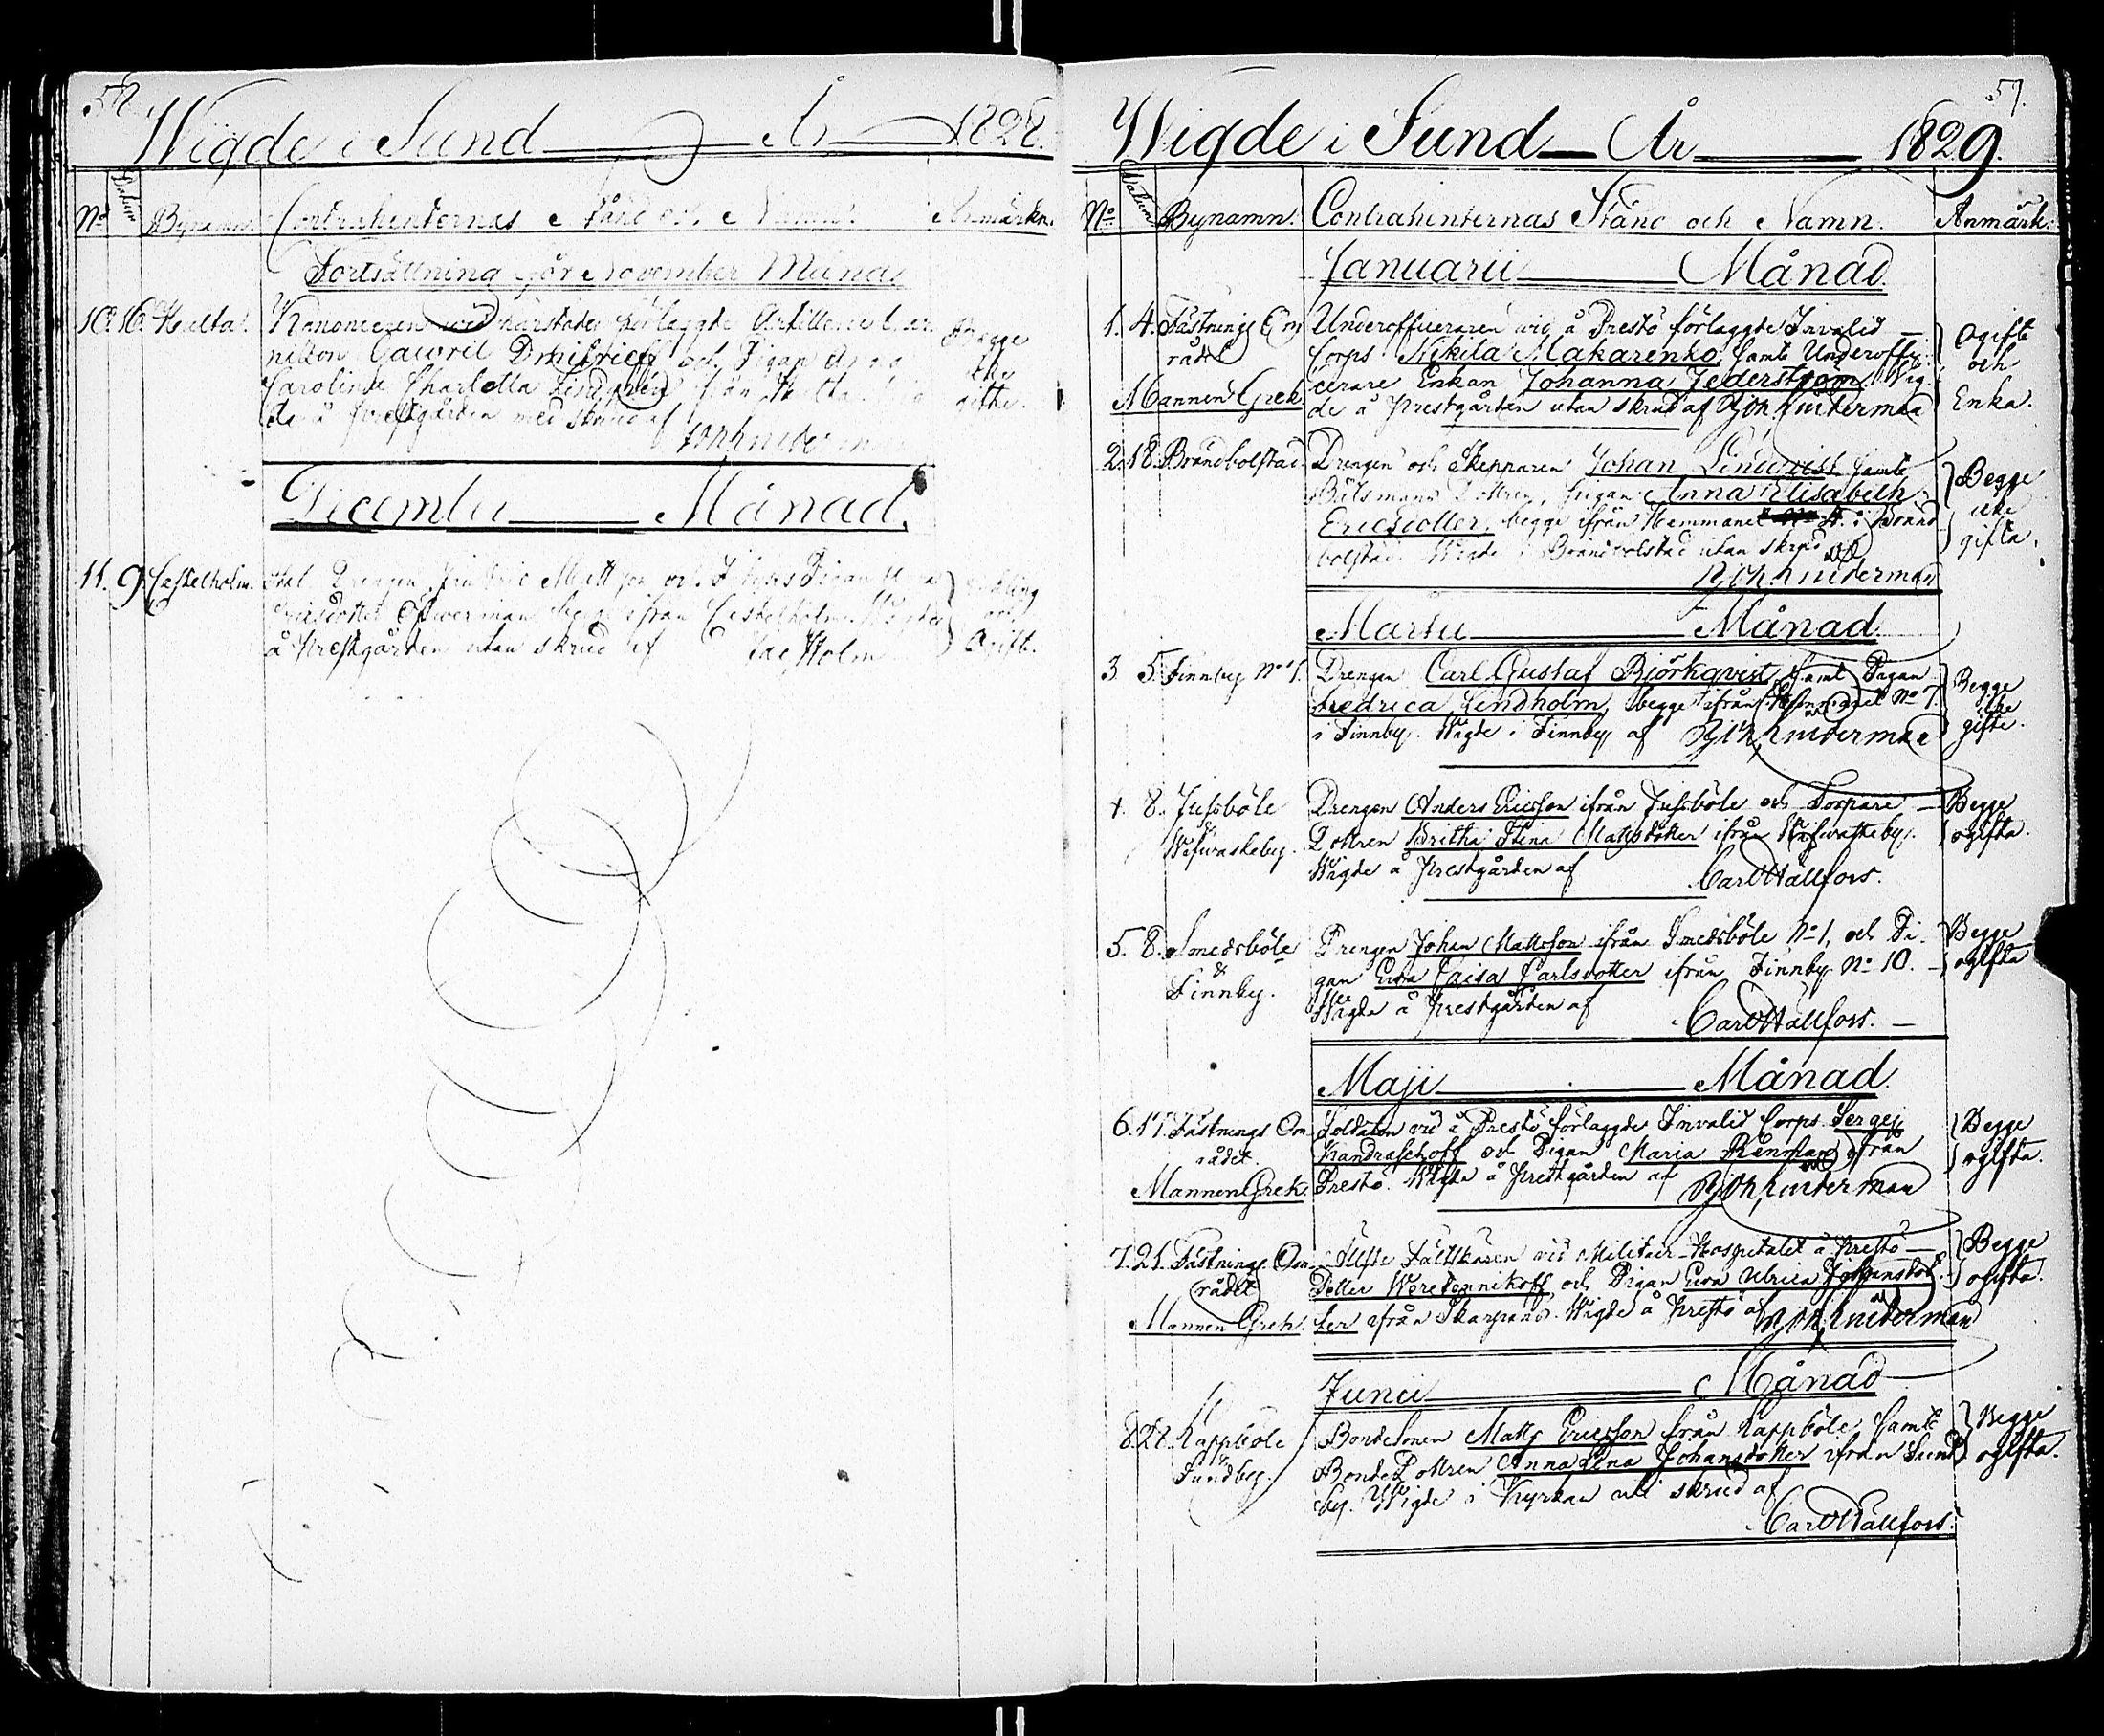 Wigde i Sund År 1828.
No Datum Bynamn. Contrahenternas Stånd och Namn. Anmärkn.
Fortsättning för November Månad.
10. 16. Hulta. Kanonieren wid härstädes förlaggde Artillerie Gar-
nizon Gawril Dmitrieff och Pigan Anna
Carolina Charlotta Lindgrén från Hulta. Wig-
de å Prestgården med skrud af
Begge
icke
gifte.
December Månad.
11. 9. Castelholm. Drengen Fredric Mattson och Pigan
begge ifrån Castelholm. Wigde
å Prestgården utan skrud af Holm
och
Ogift.
59.
Wigde i Sund År 1829.
No Datum Bynamn. Contrahenternas Stånd och Namn. Anmärk:
Januarii Månad.
1. 4. Fästnings Om
rådet
Mannen Grek.
Underofficeraren wid å Prestö förlaggde Invalid
Corps Nikita Makarenko, samt Underoffi-
cerare Enkan Johanna Jederström. Wig-
de å Prestgården utan skrud af Joh. Linderman
Ogift
och
Enka.
2. 18. Brändbolstad. Drengen och Skepparen Johan Lindqvist samt
Båtsmans Dottren, Pigan Anna Elisabeth
Ericsdotter, begge ifrån Hemmanet i Bränd-
bolstad. Wigde i Brändbolstad utan skrud af
Joh. Linderman
Begge
icke
gifta.
Martii Månad
3. 5. Finnby No 7. Drengen Carl Gustaf Björkqvist samt Pigan
Fredrica Lindholm, begge ifrån Hemmanet No 7.
i Finnby. Wigde i Finnby af Joh. Linderman
Begge
icke
gifte.
4. 8. Jussböle
&
Wifwasteby.
Drengen Anders Ericsson ifrån Jussböle och Torpare
Dottren Britha Stina Mattsdotter ifrån Wifwasteby.
Wigde å Prestgården af Carl Hällfors.
Begge
ogifta.
5. 8. Smedsböle
&
Finnby.
Drengen Johan Mattsson ifrån Smedsböle No 1, och Pi-
gan Ewa Caisa Carlsdotter ifrån Finnby No 10.
Wigde å Prestgården af Carl Hällfors.
Begge
ogifta
Maji Månad.
6. 17. Fästnings Om
rådet.
Mannen Grek.
Soldaten vid å Prestö förlaggde Invalid Corps Sergej
Kandraschoff och Pigan Maria Renman ifrån
Prestö. Wigde å Prestgården af Joh. Linderman
Begge
ogifta.
7. 21. Fästnings Om
rådet
Mannen Grek.
Fältskären vid Militair-Hospitalet å Prestö
Petter Weretennikoff, och Pigan Ewa Ulrica Johansdot-
ter ifrån Skarpans. Wigde å Prestö af Joh. Linderman
Begge
ogifta.
Junii Månad
8. 28. Kappböle
&
Sundby.
BondeSonen Matts Ericsson från Kappböle, samt
BondeDottren Anna Lena Johansdotter ifrån Sund-
by. Wigde i Kyrkan uti skrud af
Carl Hällfors.
Begge
ogifta.